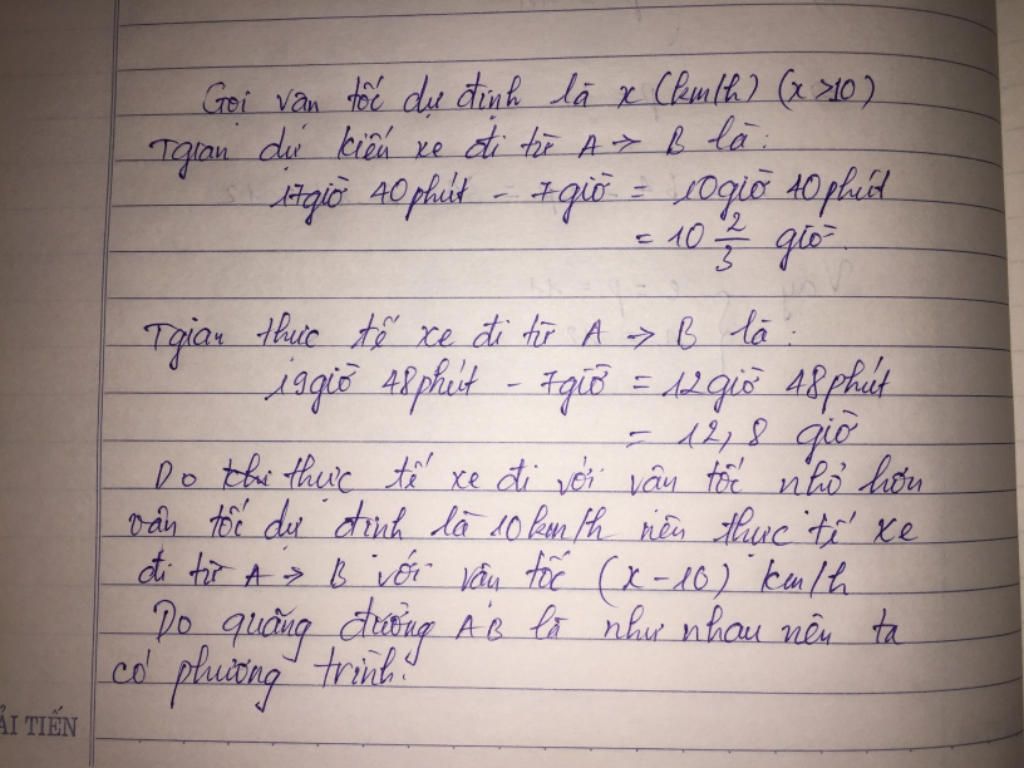 Gọi vân tốc dự định là x (km/h) (x >10)
Tgian dự kiến xe đi từ A → B là:
17giờ 40phút - 7giờ = 10giờ 40phút
= 10 2/3 giờ.
Tgian thực tế xe đi từ A → B là:
19giờ 48phút - 7giờ = 12giờ 48phút
= 12,8 giờ
Do thực tế xe đi với vân tốc nhỏ hơn
vân tốc dự định là 10km/h nên thực tế xe
đi từ A → B với vân tốc (x-10) km/h
Do quãng đường AB là như nhau nên ta
có phương trình:
ẢI TIẾN